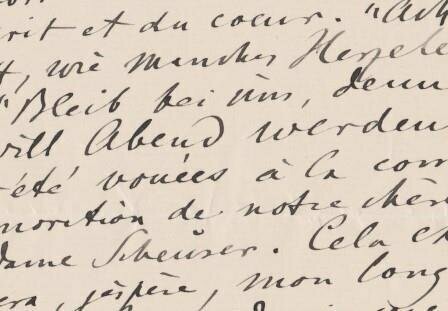 rit et du coeur. "Ach
wie manches Herze
"Bleib bei uns, denn
will Abend werden
été vouées à la com
de notre chère
dame Scheuser. Cela
era, j'éspère, mon long